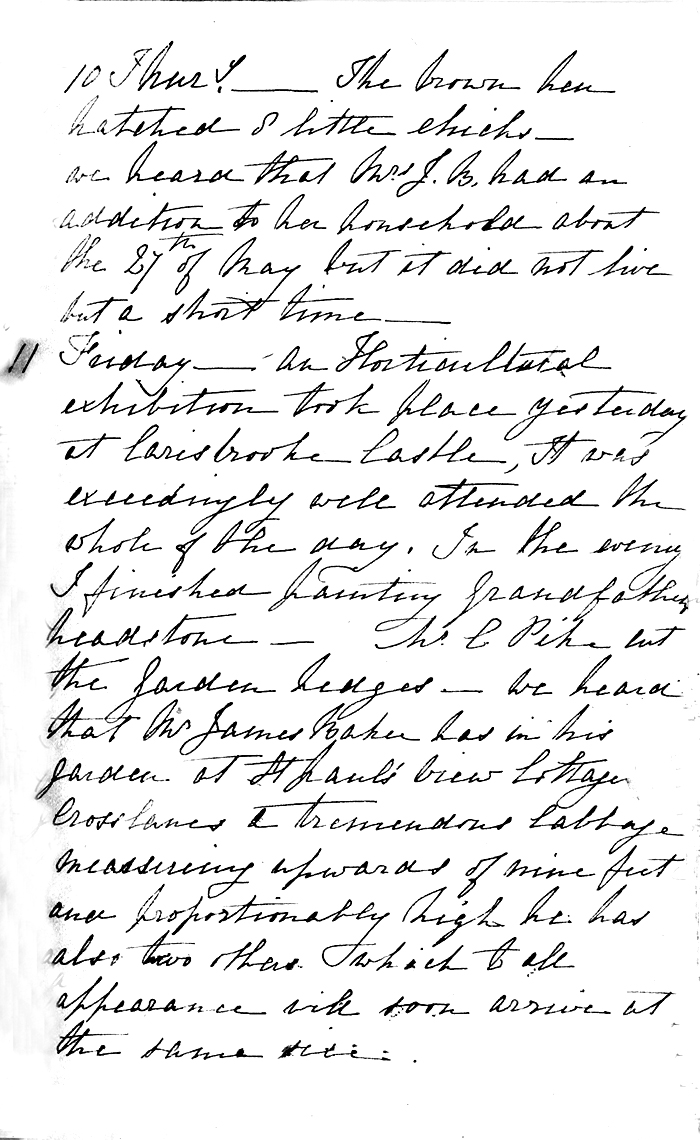 10 Thurs.y —— The brown hen
hatched 8 little chicks —
we heard that Mrs J. B. had an
addition to her household about
the 27th of May but it did not live
but a short time ——
11 Friday —— an Horticultural
exhibition took place yesterday
at Carisbrooke Castle, It was
exceedingly well attended the
whole of the day. In the evening
I finished painting Grandfathers
headstone — Mr. C Pike cut
the garden hedges — we heard
that Mr James Baker has in his
garden at St Paul's View Cottage
Crosslanes a tremendous Cabbage
meassureing upwards of nine feet
and proportionably high he has
also two others which to all
appearance will soon arrive at
the same size.